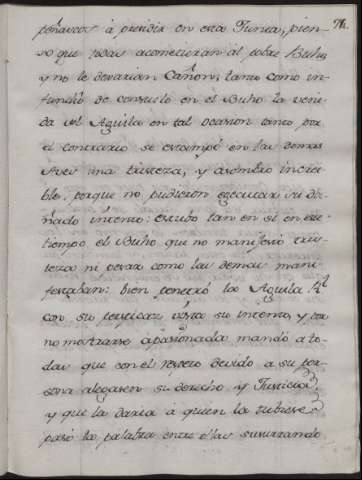 78.
à presidir en esta Junta, pien-
so que todas acometieran al pobre Buho,
y no le devarian Cañon, tanto como in-
fundió de consuelo en el Buho la veni-
da del Aguila en tal ocasion tanto por
el contrario se estampó en las demas
Aves una tristeza, y asombro increi-
ble, porque no pudieron egecutar su
intento: estubo tan en si en este
tiempo el Buho que no manifestó tris-
teza ni pesar como las demas mani-
festaban: bien penetró la Aguila Rl
con su perspicaz vista su intento, y por
no mostrarse apasionada mandó a to-
das que con el respeto devido a su per-
sona alegasen su derecho y Justicia,
y que la daria à quien la tubiese,
pasó la palabra entre ellas susurrando